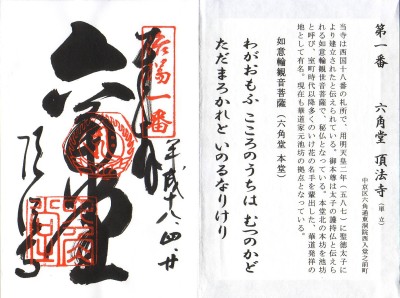 第一番 六角堂 頂法寺（単立）
中京区六角通東洞院西入堂之前町
当寺は西国十八番の札所で、用明天皇二年（五八七）に聖徳太子に
より建立されたと伝えられている。御本尊は太子の護持仏と伝えら
れる如意輪観世音菩薩で、秘仏となっている。本堂北の本坊を池坊
と呼び、室町時代以降多くのいけ花の名手を輩出した。華道発祥の
地として有名。現在も華道家元池坊の拠点となっている。
如意輪観音菩薩（六角堂 本堂）
わがおもふ こころのうちは むつのかど
ただまろかれと いのるなりけり
洛陽一番
平成十八、四、廿
六角堂
頂法寺